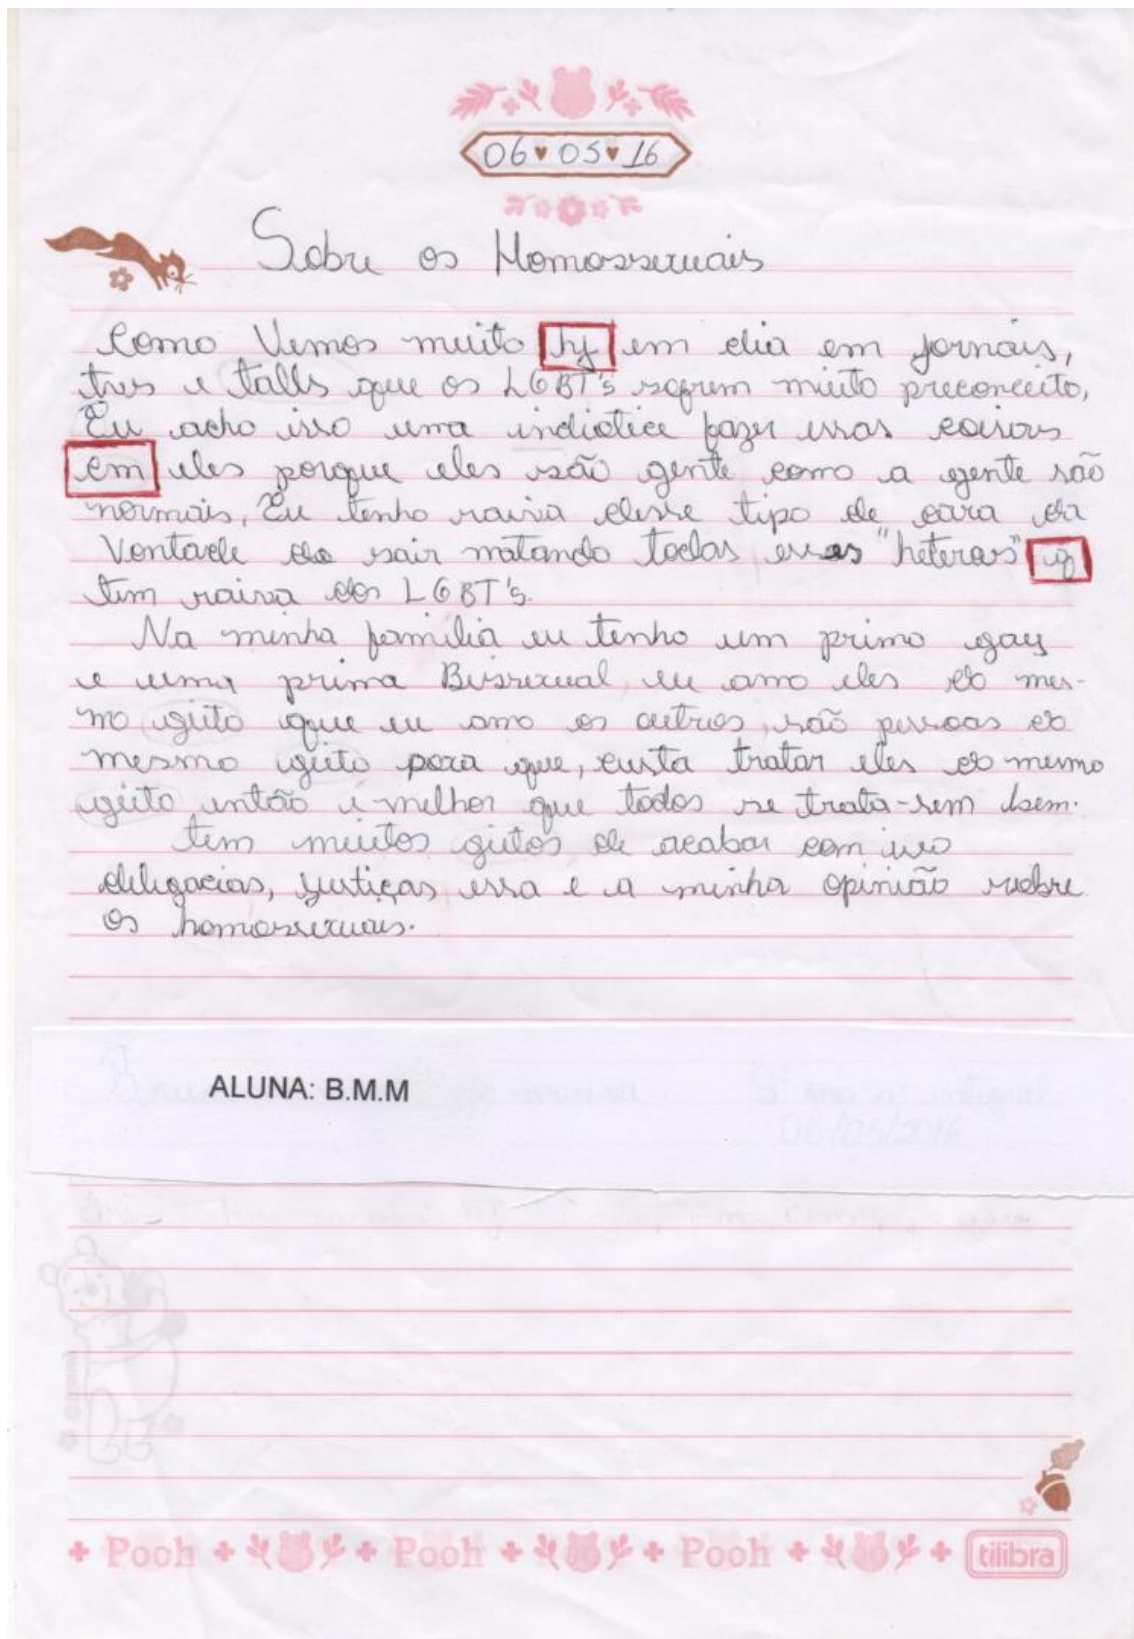 06 05 16
Sobre os Homossexuais
Como Vemos muito hj em dia em jornais,
tves e talls que os LGBT's sofrem muito preconceito,
Eu acho isso uma indiotice fazer essas coisas
em eles porque eles são gente como a gente são
normais, Eu tenho raiva desse tipo de cara da
Vontade de sair matando todas esses "heteros" q
tem raiva dos LGBT's.
Na minha família eu tenho um primo gay
e uma prima Bissexual, eu amo eles do mes-
mo geito que eu amo os outros, são pessoas do
mesmo geito para que, custa tratar eles do mesmo
geito então é melhor que todos se trata-sem bem.
tem muitos geitos de acabar com isso
deligacias, justiças essa e a minha opinião sobre
os homossexuais.
ALUNA: B.M.M
Pooh Pooh Pooh tilibra